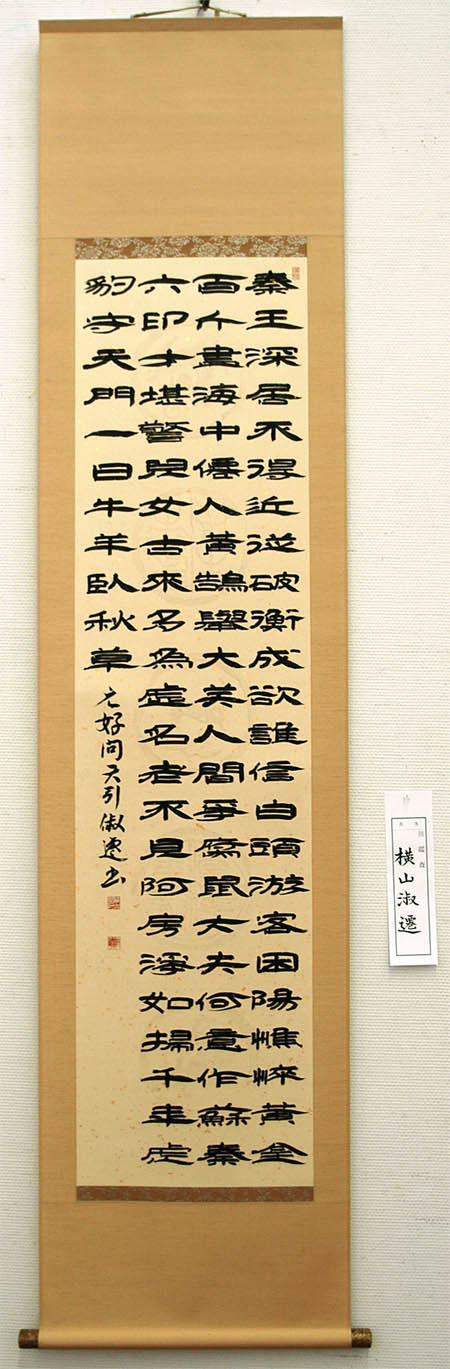 秦王深居不得近從破衡成欲誰信白頭游客困陽憔悴黃金
百斤盡海中僊人黃鵠舉大笑人間爭腐鼠丈夫何意作蘇秦
六印才堪警兒女古來多為虛名老不見阿房淨如掃千年虎
豹守天門一日牛羊臥秋草
元好問天引淑遷書
横山淑遷